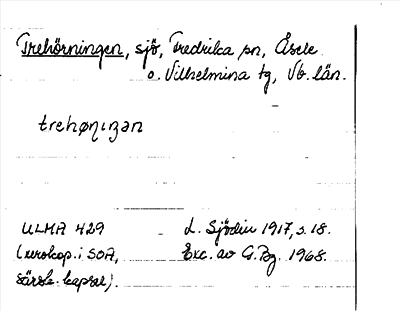 Trehörningen, sjö, Fredrika sn, Åsele
o. Vilhelmina tg, Vb. län.
trehøŋıŋən
ULMA 429 L. Sjödin 1917, s. 18.
(xerokop. i SOA, Exc. av G. Bg. 1968.
särsk. kapsel).